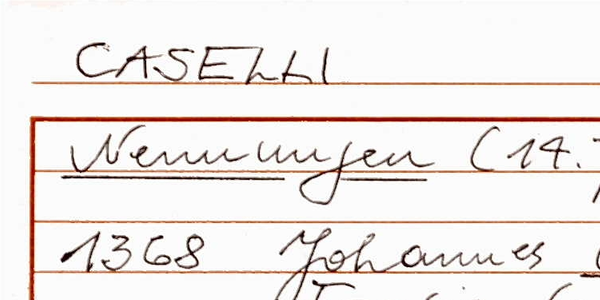 CASELLI
Nennungen (14.
1368 Johannes